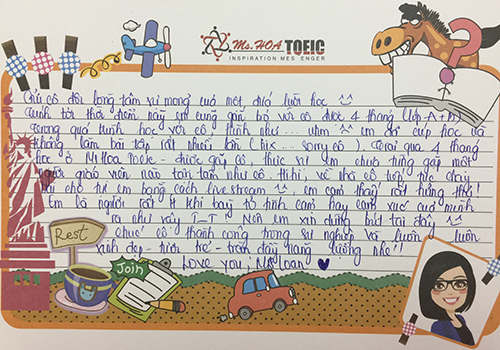 Ms.HOA TOEIC
INSPIRATION MESSENGER
Gửi cô đôi dòng tâm sự mong của một đứa lười học ^^
Tính tới thời điểm này em cũng gắn bó với cô được 4 tháng (lớp A+B)
trong quá trình học với cô, hình như ... uhm ^^ em đã cúp học và
không làm bài tập rất nhiều lần (hix ... sorry cô). Trải qua 4 tháng
học ở Ms Hoa Toeic - được gặp cô, thực sự em chưa từng gặp một
người giáo viên nào tận tâm như cô. Hihi, về nhà cô tiếp tục dạy
cho tụi em bằng cách live stream ^^, em cảm thấy rất hứng thú!
Em là người rất ít khi bày tỏ tình cảm hay cảm xúc của mình
ra như vậy T_T Nên em xin dừng bút tại đây ^^
Chúc cô thành công trong sự nghiệp và luôn luôn
xinh đẹp - tươi trẻ - tràn đầy năng lượng nhé!!
Love you, Loan
Rest
Join